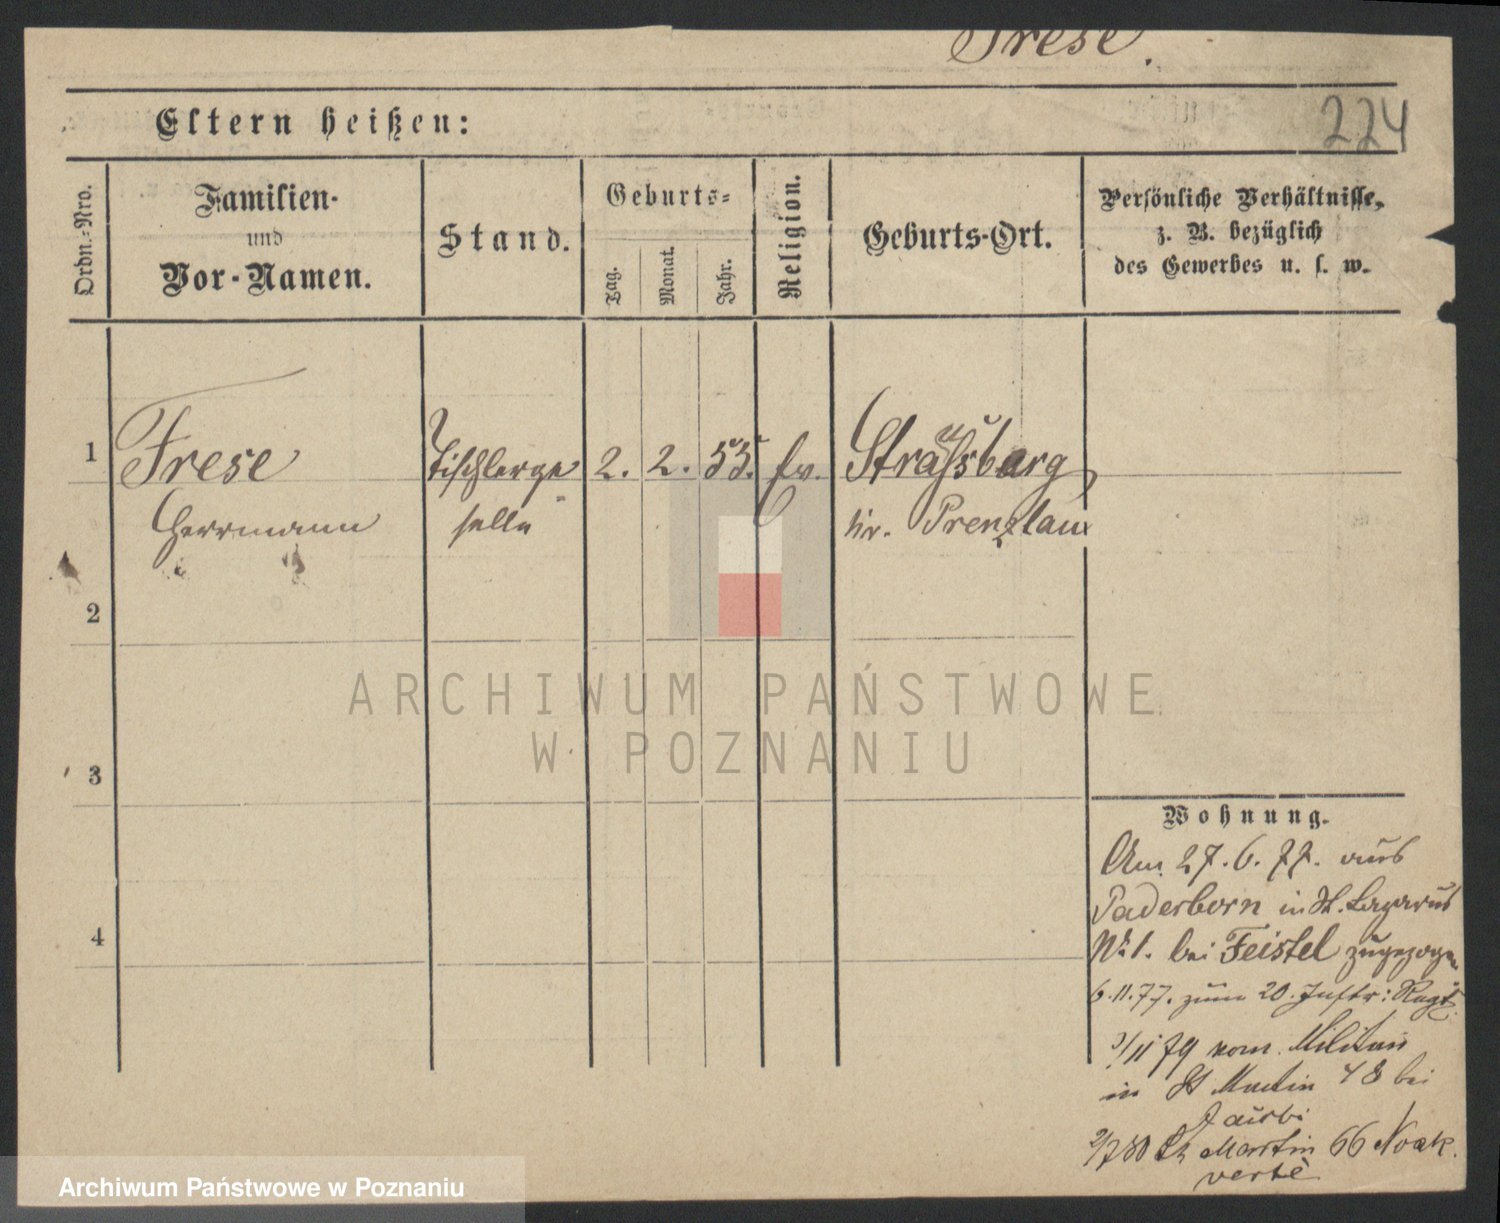 Frese.
Eltern heißen:
224
Ordn.-Nro.
Familien-
und
Vor-Namen.
Stand.
Geburts-
Tag.
Monat.
Jahr.
Religion.
Geburts-Ort.
Persönliche Verhältnisse,
z. B. bezüglich
des Gewerbes u. s. w.
1
Frese
Herrmann
Tischlerge
selle
2. 2. 55. ev.
Strassburg
Kr. Prenzlau
2
3
4
ARCHIWUM PAŃSTWOWE
W POZNANIU
Wohnung.
Am 27. 6. 77. aus
Paderborn in St. Lazarus
No 1. bei Feistel zugezogen
6. 11. 77. zum 20. Inftr: Regt.
11 79 vom Militair
in St Martin 48 bei
2/7 80 St Martin 66 Noak.
verte
Archiwum Państwowe w Poznaniu